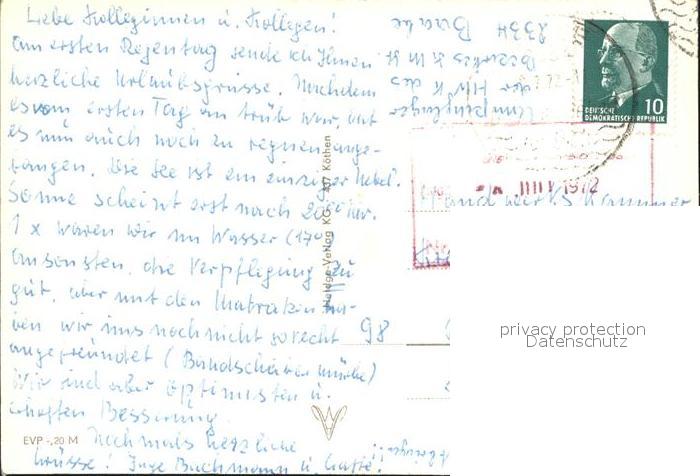 Liebe Kolleginnen u. Kollegen!
Am ersten Regentag sende ich Ihnen
herzliche Urlaubsgrüsse. Nachdem
es vom ersten Tag an trüb war, hat
es nun auch noch zu regnen ange-
fangen. Die See ist ein einziger Nebel.
Sonne scheint erst nach 20°° Uhr.
1 x waren wir im Wasser (17°)
ansonsten, die Verpflegung zu
gut, aber mit den Matratzen ha-
ben wir uns noch nicht so recht
angefreundet (Bandscheiben mürbe)
Wir sind aber Optimisten u.
erhoffen Besserung.
Nochmals herzliche
Grüsse! Inge Bachmann u. Gatte!
EVP -,20 M
Verlag KG, 437 Köthen
des
DEUTSCHE
DEMOKRATISCHE REPUBLIK
10
JUNI 1972
Handwerkskammer
98
privacy protection
Datenschutz